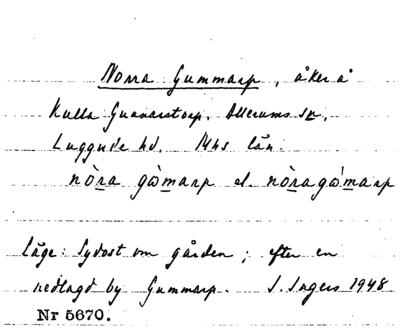 Norra Gummarp, åker å
Kulla Gunnarstorp. Allerums sn,
Luggude hd. Mhs län.
nòra gòmarp el. nòragòmarp
Läge: Sydost om gården; efter en
nedlagd by Gummarp. I. Ingers 1948
Nr 5670.